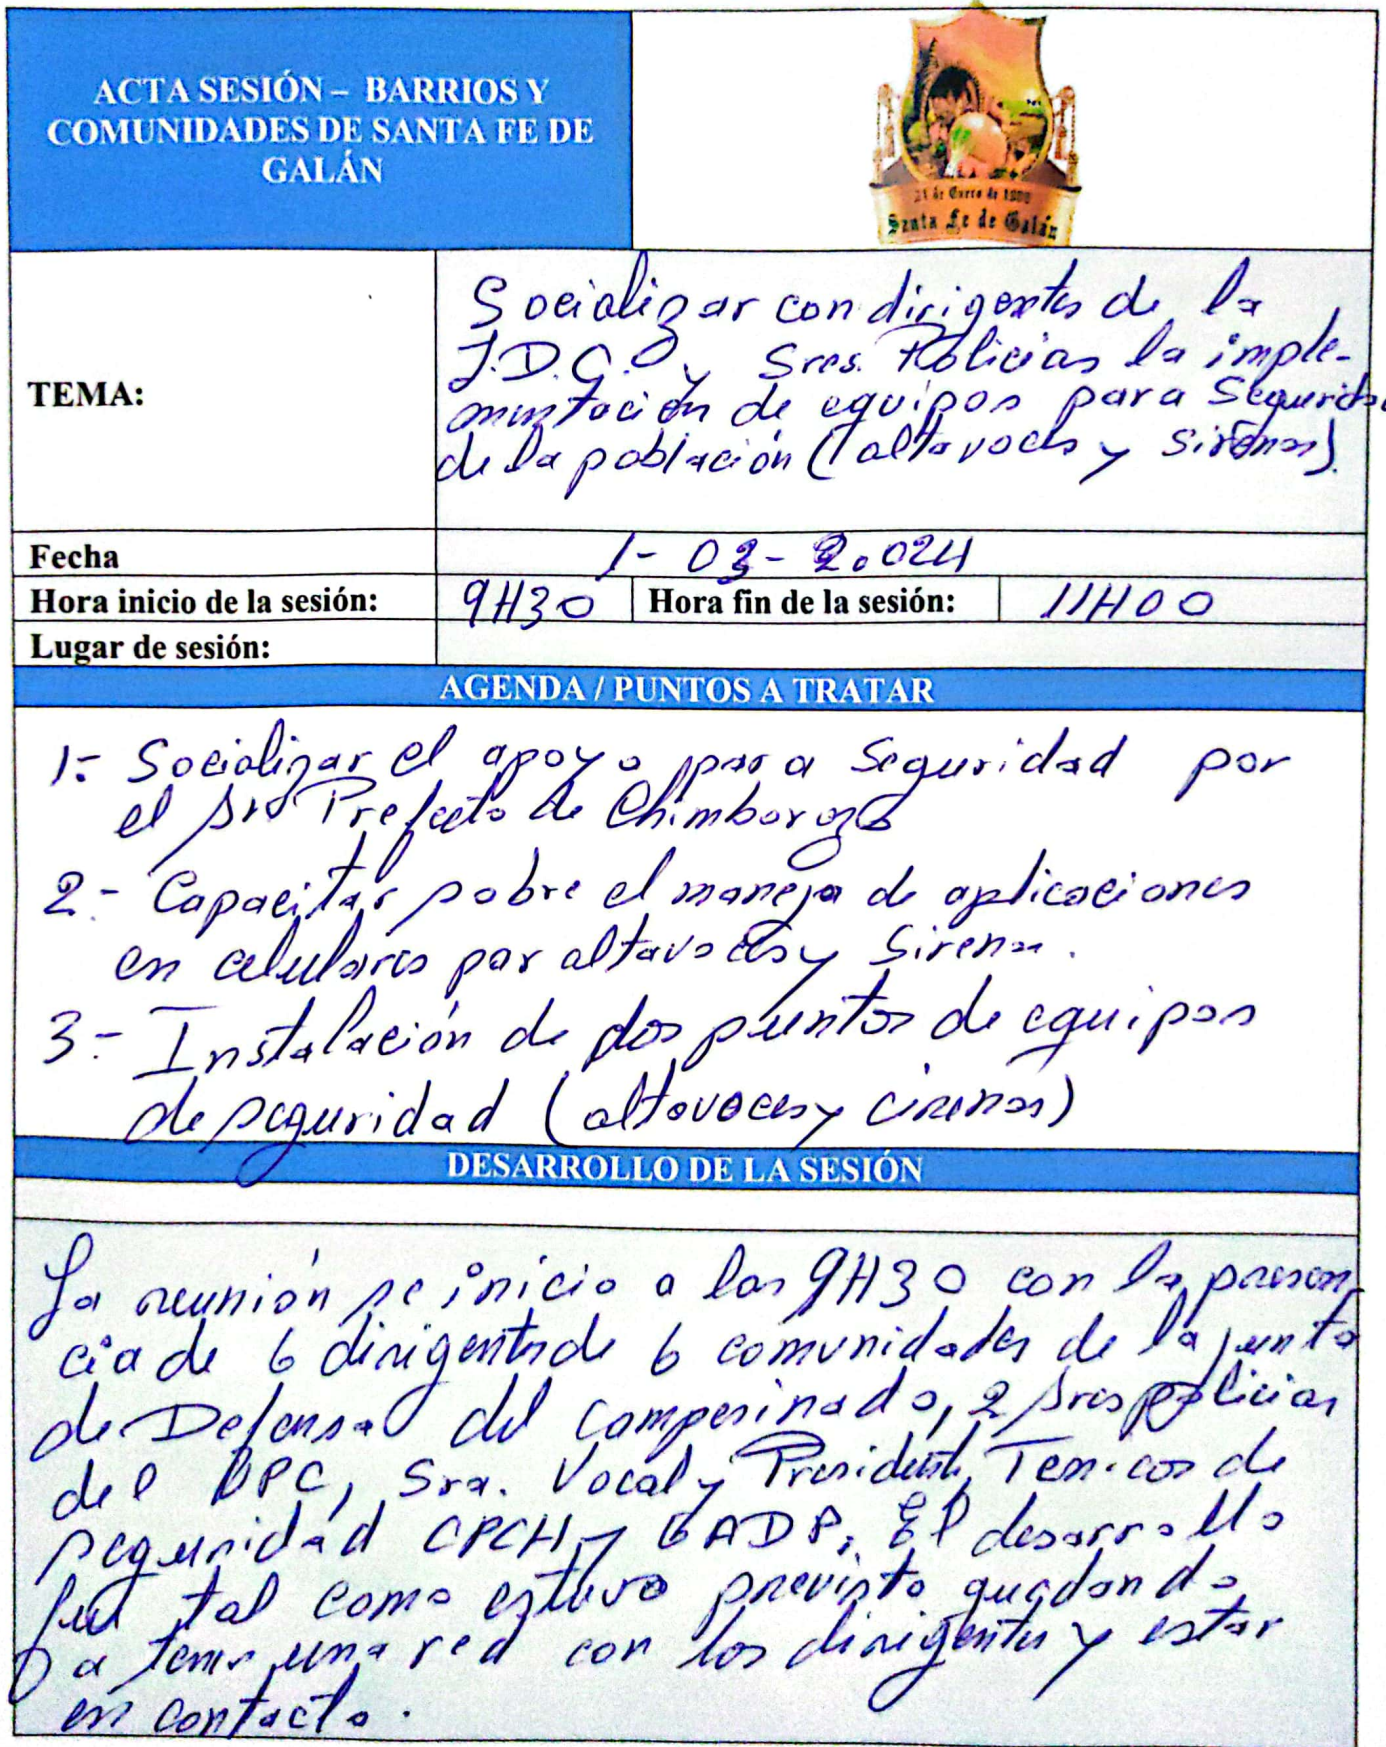 ACTA SESIÓN – BARRIOS Y
COMUNIDADES DE SANTA FE DE
GALÁN
21 de Enero de 1900
Santa Fe de Galán
TEMA:
Socializar con dirigentes de la
J.D.C. y Sres. Policias la imple-
mentación de equipos para Seguridad
de la población (altavoces y sirenas).
Fecha
1- 03- 2.024
Hora inicio de la sesión:
9H30
Hora fin de la sesión:
11H00
Lugar de sesión:
AGENDA / PUNTOS A TRATAR
1.- Socializar el apoyo para Seguridad por
el Sr. Prefecto de Chimborazo
2.- Capacitar sobre el manejo de aplicaciones
en celulares por altavoces y Sirena.
3.- Instalación de dos puntos de equipos
de seguridad (altavoces y cirenas)
DESARROLLO DE LA SESIÓN
La reunión se inicio a las 9H30 con la presen
cia de 6 dirigentes de 6 comunidades de la junta
de Defensa del Campesinado, 2 Sres policias
del UPC, Sra. Vocal y Presidente, Tenicos de
seguridad CPCH y GADP. El desarrollo
fue tal como estuvo previsto quedando
a tener una red con los dirigentes y estar
en contacto.